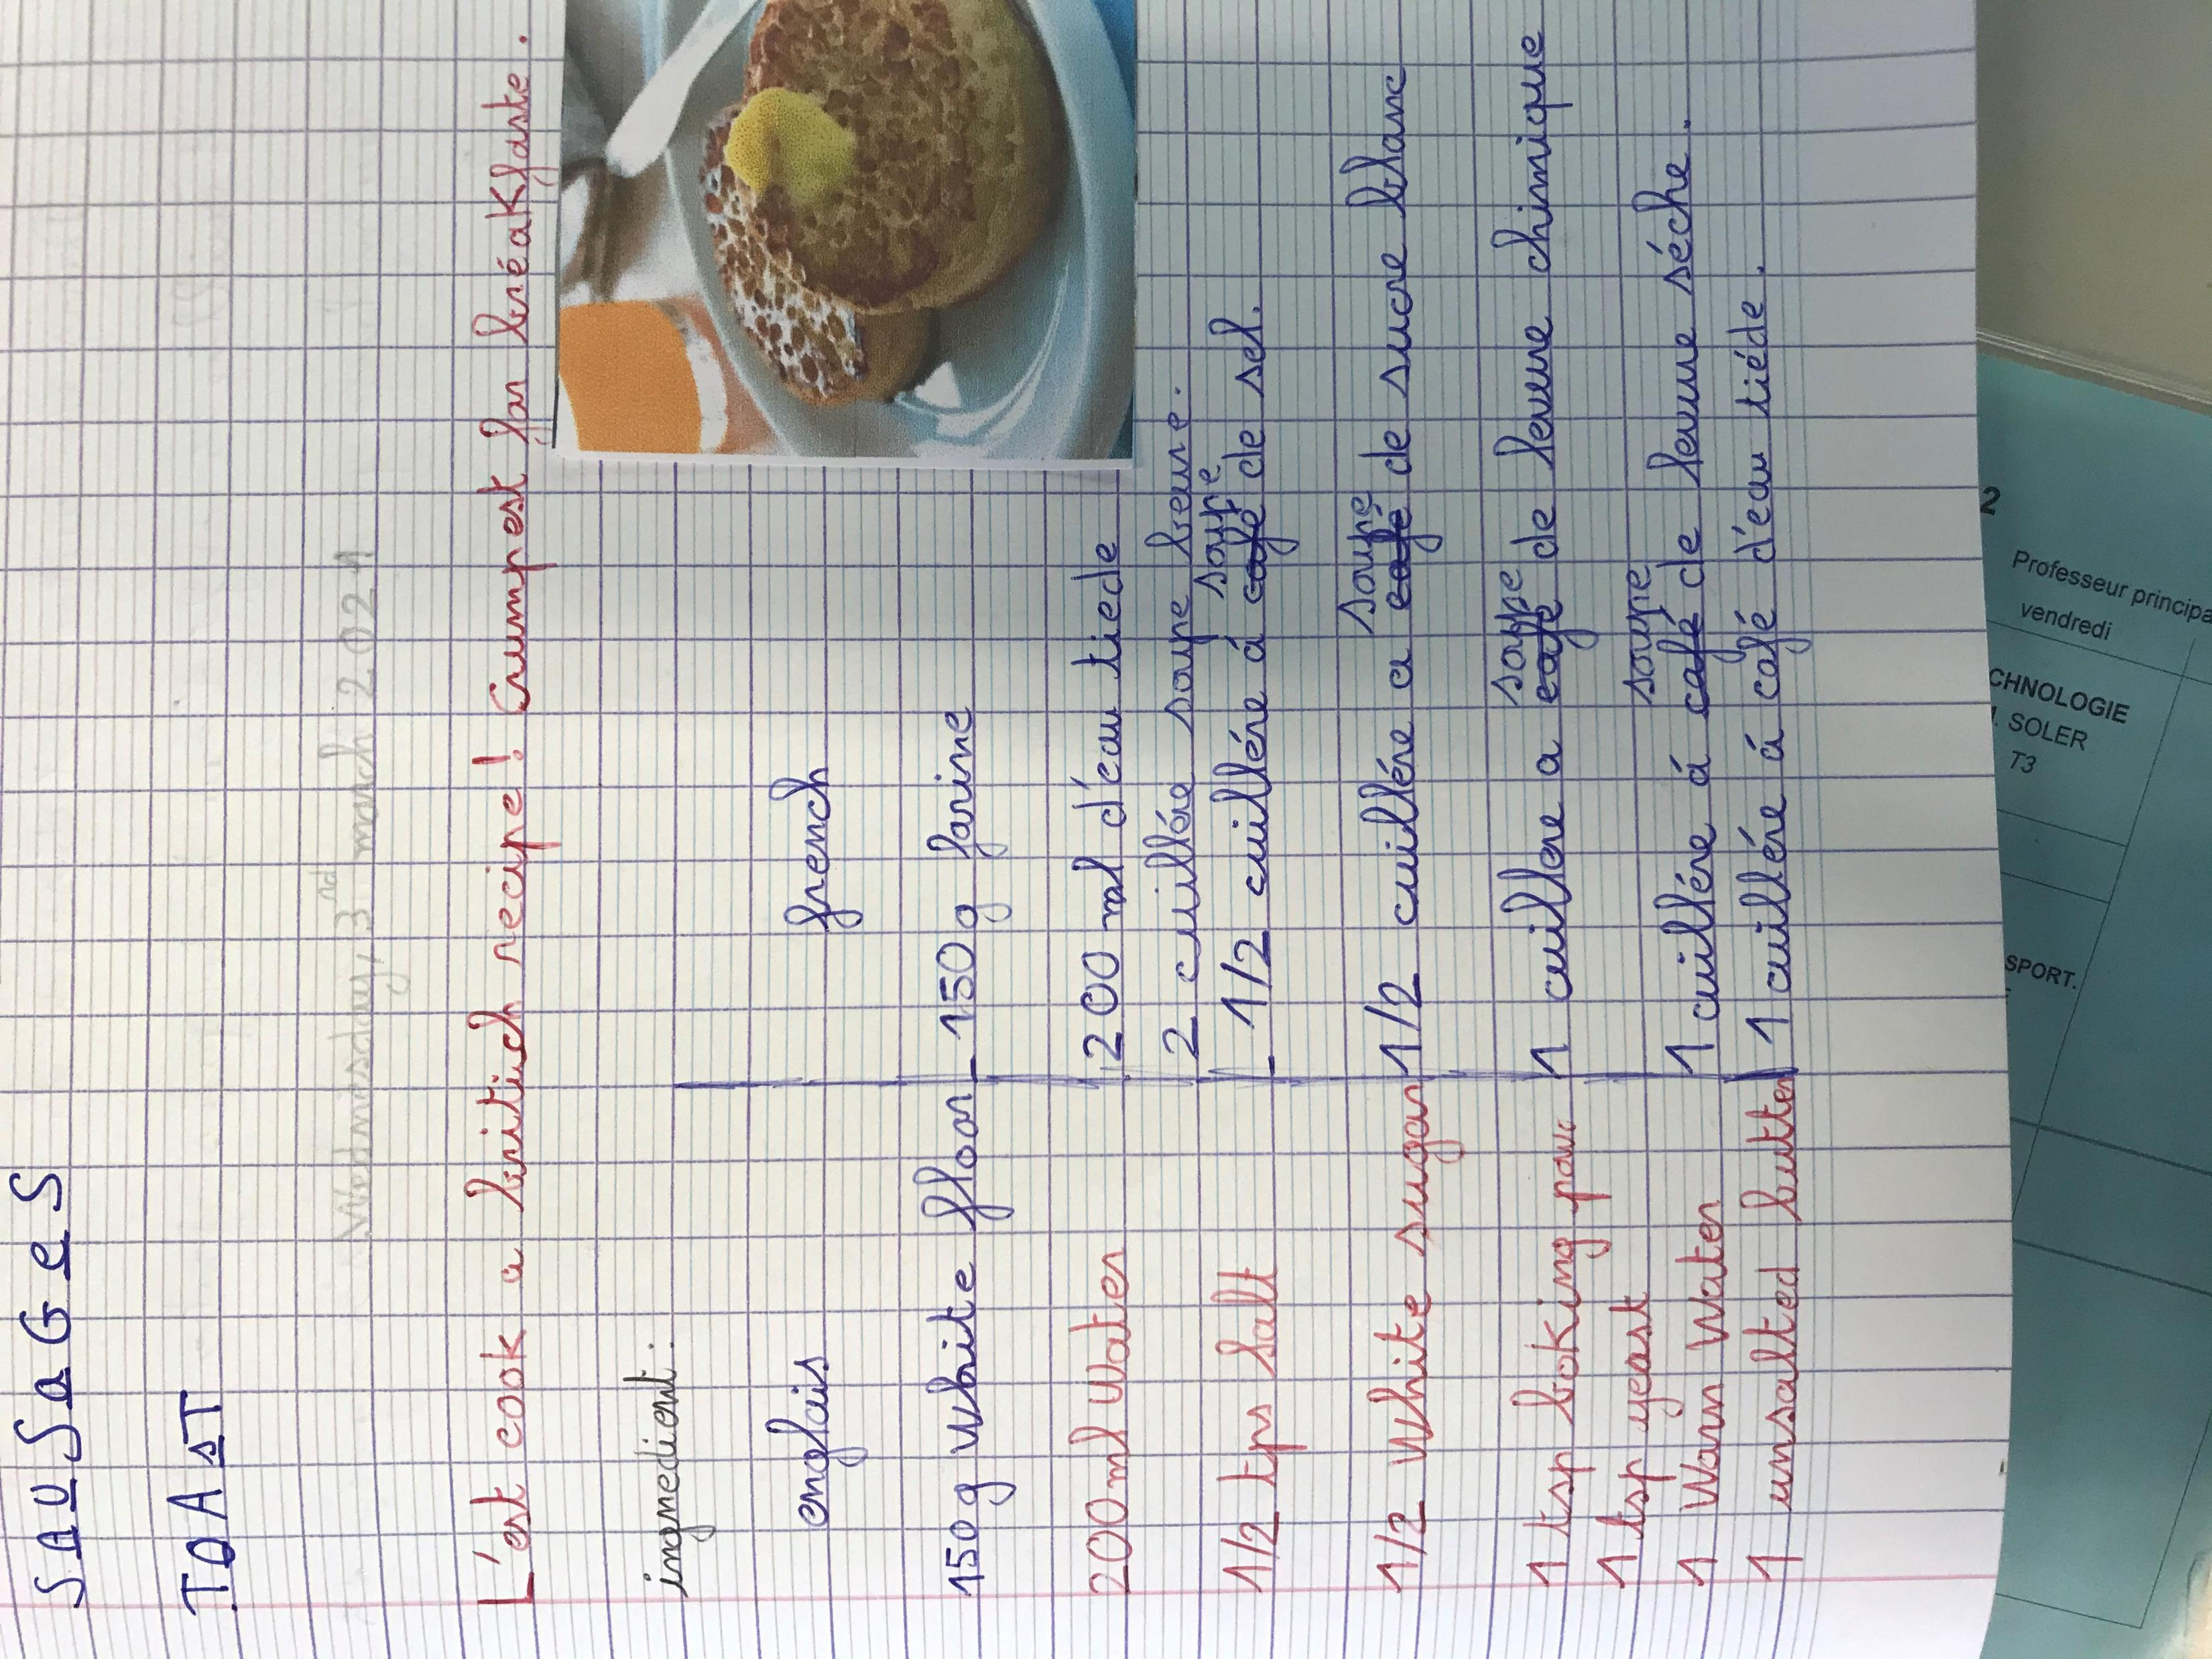 SAUSAGeS
TOAST
Wednesday, 3rd march 2021
L'est cook a britich recipe! Crumpest for bréaKfaste.
ingredient:
englais french
150g White floor 150g farine
200ml Water 200 ml d'eau tiede
2 cuillére soupe beure.
1/2 tps Salt 1/2 cuillére á café soupe de sel.
1/2 White sugar 1/2 cuillére a café soupe de sucre blanc
1 tsp boking pow 1 cuillere a café soupe de levure chimique
1 tsp yeast
1 Warn Water 1 cuillére á café soupe de levure séche.
1 unsalted butter 1 cuillére á café d'eau tiéde.
2
Professeur principa
vendredi
CHNOLOGIE
. SOLER
T3
SPORT.